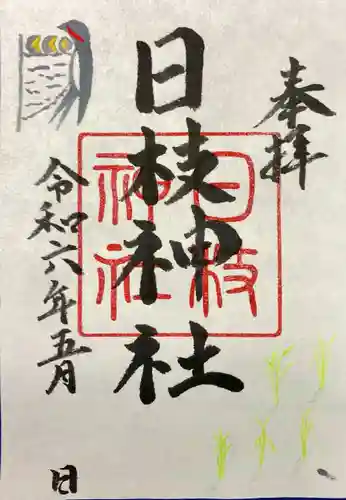 奉拝
日枝神社
日枝
神社
令和六年五月
日